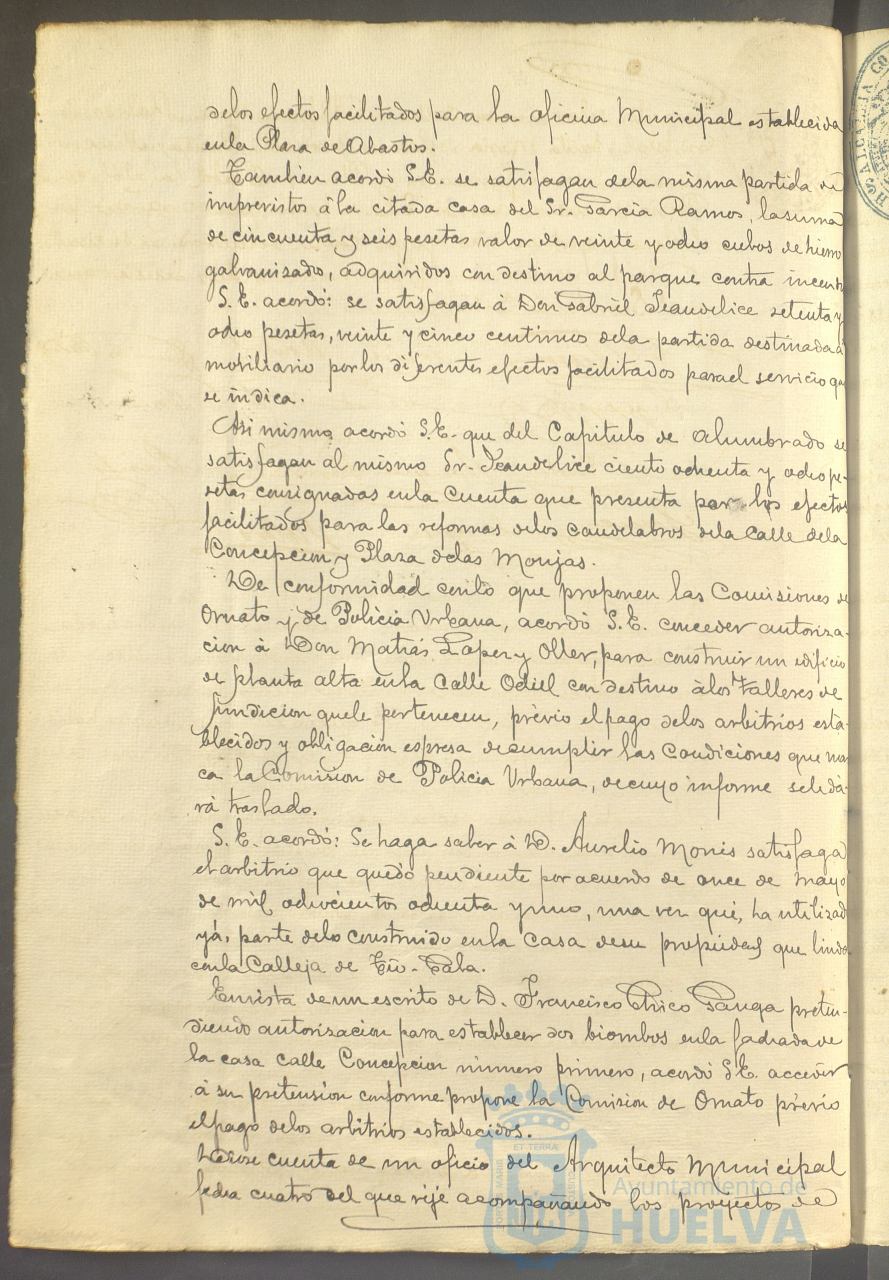 delos efectos facilitados para la oficina Municipal establecida
en la Plaza de Abastos.
Tambien acordó S.E. se satisfagan dela misma partida de
imprevistos á la citada casa del Sr. Garcia Ramos, la suma
de cincuenta y seis pesetas valor de veinte y ocho cubos de hierro
galvanizado, adquiridos con destino al parque contra incen
S.E. acordó: se satisfagan á Don Gabriel Jeandelice setenta y
ocho pesetas, veinte y cinco centimos dela partida destinada á
mobiliario por los diferentes efectos facilitados para el servicio que
se indica.
Asi mismo acordó S.E. que del Capitulo de alumbrado se
satisfagan al mismo Sr. Jeandelice ciento ochenta y ocho pe-
setas consignadas en la cuenta que presenta por los efectos
facilitados para las reformas delos candelabros dela Calle dela
Concepcion y Plaza delas Monjas.
De conformidad con lo que proponen las Comisiones de
Ornato y de Policia Urbana, acordó S.E. conceder autoriza-
cion á Don Matias Lopez y Oller, para construir un edificio
de planta alta en la Calle Odiel con destino á los talleres de
fundicion que le pertenecen, prévio el pago delos arbitrios esta-
blecidos y obligacion espresa de cumplir las Condiciones que mar
ca la Comision de Policia Urbana, de cuyo informe se le da-
rá traslado.
S.E. acordó: Se haga saber á D. Aurelio Monis satisfaga
el arbitrio que quedó pendiente por acuerdo de once de Mayo
de mil ochocientos ochenta y uno, una vez que, ha utilizad
yá, parte delo construido en la casa de su propiedad que linda
con la Calleja de Tio-Pala.
En vista de un escrito de D. Francisco Chico Ganga preten-
diendo autorizacion para establecer dos biombos en la fachada de
la casa calle Concepcion número primero, acordó S.E. acceder
á su pretension conforme propone la Comision de Ornato prévio
el pago delos arbitrios establecidos.
Dióse cuenta de un oficio del Arquitecto Municipal
fecha cuatro del que rije acompañando los proyectos de
Ayuntamiento de
HUELVA